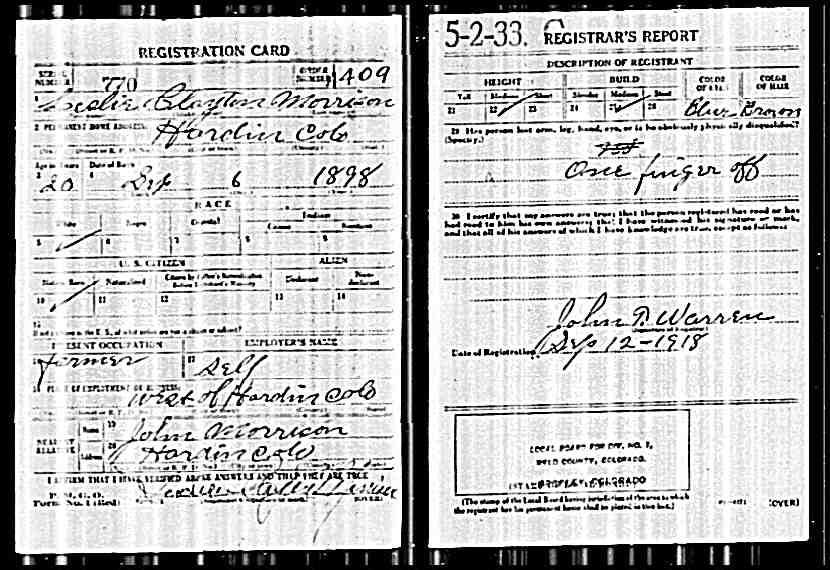 REGISTRATION CARD
SERIAL NUMBER 770 ORDER NUMBER 1409
1 Leslie Clayton Morrison
2 PERMANENT HOME ADDRESS: Hardin Colo
Age in Years Date of Birth
3 20 4 Sep 6 1898
RACE
White Negro Oriental Indian
Citizen
5 6 7 8 9
U. S. CITIZEN ALIEN
Native Born Naturalized Citizen by Father's Naturalization Before Registrant's Majority Declarant Non-declarant
10 11 12 13 14
15
If not a citizen of the U. S., of what nation are you a citizen or subject?
PRESENT OCCUPATION EMPLOYER'S NAME
16 Farmer 17 Self
18 PLACE OF EMPLOYMENT OR BUSINESS:
West of Hardin Colo
NEAREST RELATIVE
Name 19 John Morrison
Address 20 Hardin Colo
I AFFIRM THAT I HAVE VERIFIED ABOVE ANSWERS AND THAT THEY ARE TRUE
P. M. G. O.
Form No. 1 (Red)
5-2-33. C REGISTRAR'S REPORT
DESCRIPTION OF REGISTRANT
HEIGHT BUILD COLOR OF EYES COLOR OF HAIR
Tall Medium Short Slender Medium Stout
21 22 23 24 25 26 Blue Brown
29 Has person lost arm, leg, hand, eye, or is he obviously physically disqualified?
(Specify.)
One finger off
30 I certify that my answers are true; that the person registered has read or has
had read to him his own answers; that I have witnessed his signature or mark,
and that all of his answers of which I have knowledge are true, except as follows:
John T. Warren
(Signature of Registrar)
Date of Registration Sep 12-1918
LOCAL BOARD FOR DIV. NO. 1,
WELD COUNTY, COLORADO.
GREELEY, COLORADO
(STAMP OF LOCAL BOARD)
(The stamp of the Local Board having jurisdiction of the area in which
the registrant has his permanent home shall be placed in this box.)
(OVER)